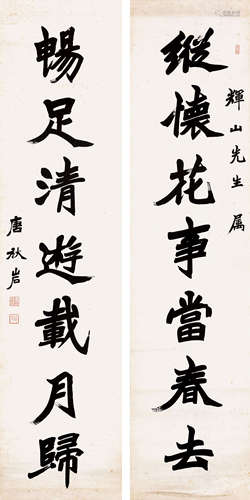 輝山先生属
縱懷花事當春去
暢足清遊載月歸
唐秋岩